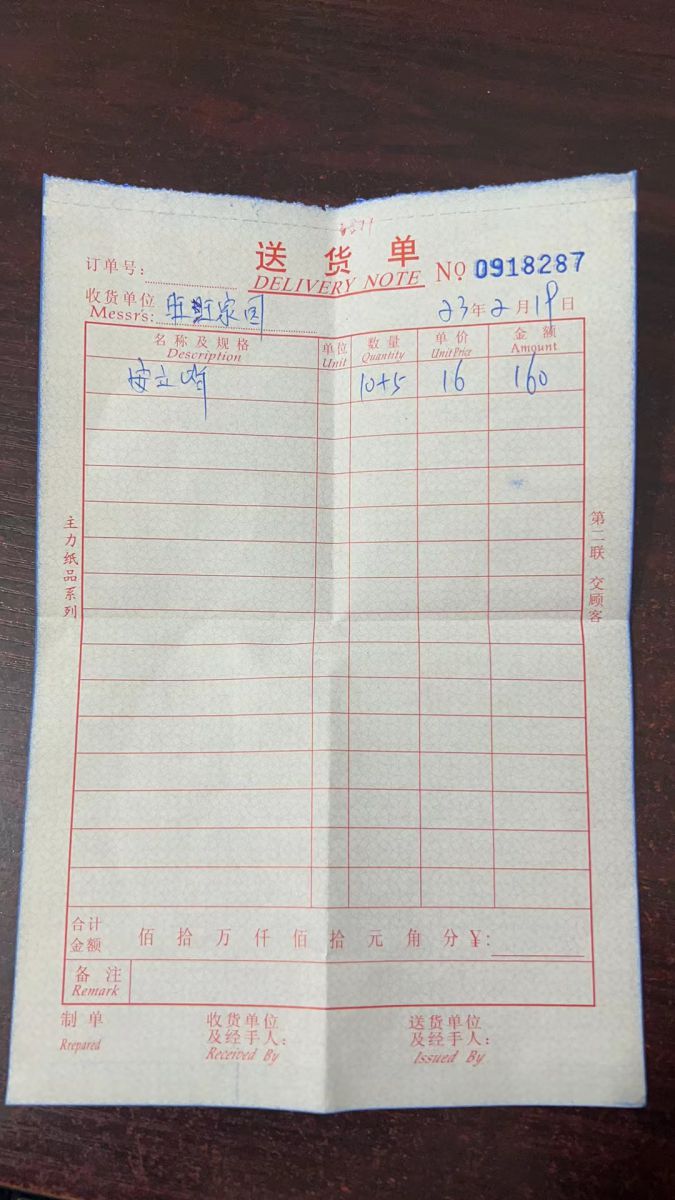 送货单
DELIVERY NOTE
№ 0918287
订单号:
收货单位
Messrs: 旺旺家园
23年2月19日
名称及规格 单位 数量 单价 金额
Description Unit Quantity Unit Price Amount
10+5 16 160
主力纸品系列
第二联 交顾客
合计
金额 佰拾万仟佰拾元角分¥:
备注
Remark
制单 收货单位 送货单位
及经手人: 及经手人:
Rrepared Received By Issued By